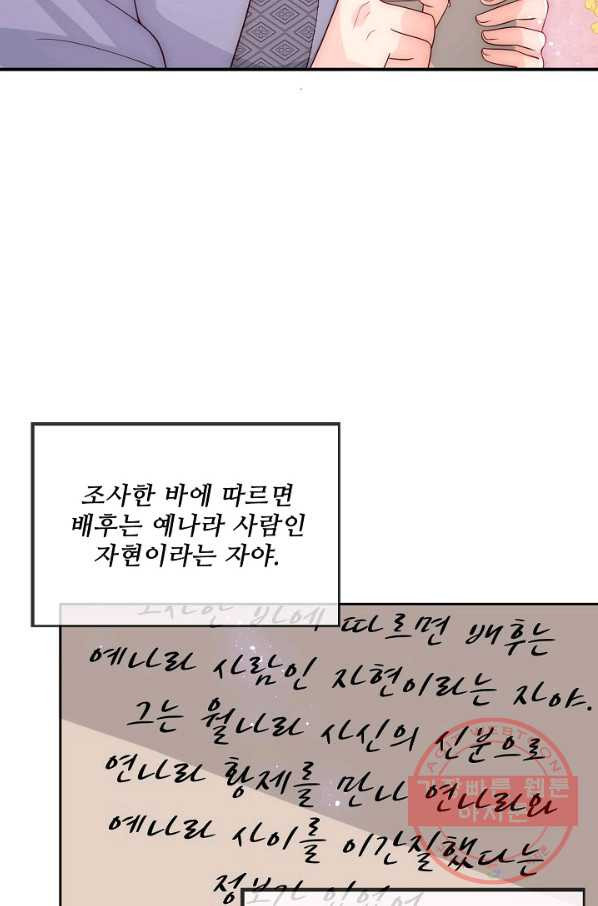 조사한 바에 따르면
배후는 예나라 사람인
자현이라는 자야.
조사한 바에 따르면 배후는
예나라 사람인 자현이라는 자야.
그는 월나라 사신의 신분으로
연나라 황제를 만나 연나라와
예나라 사이를 이간질했다는
정보가 있었어
가장빠른 웹툰
마지툰